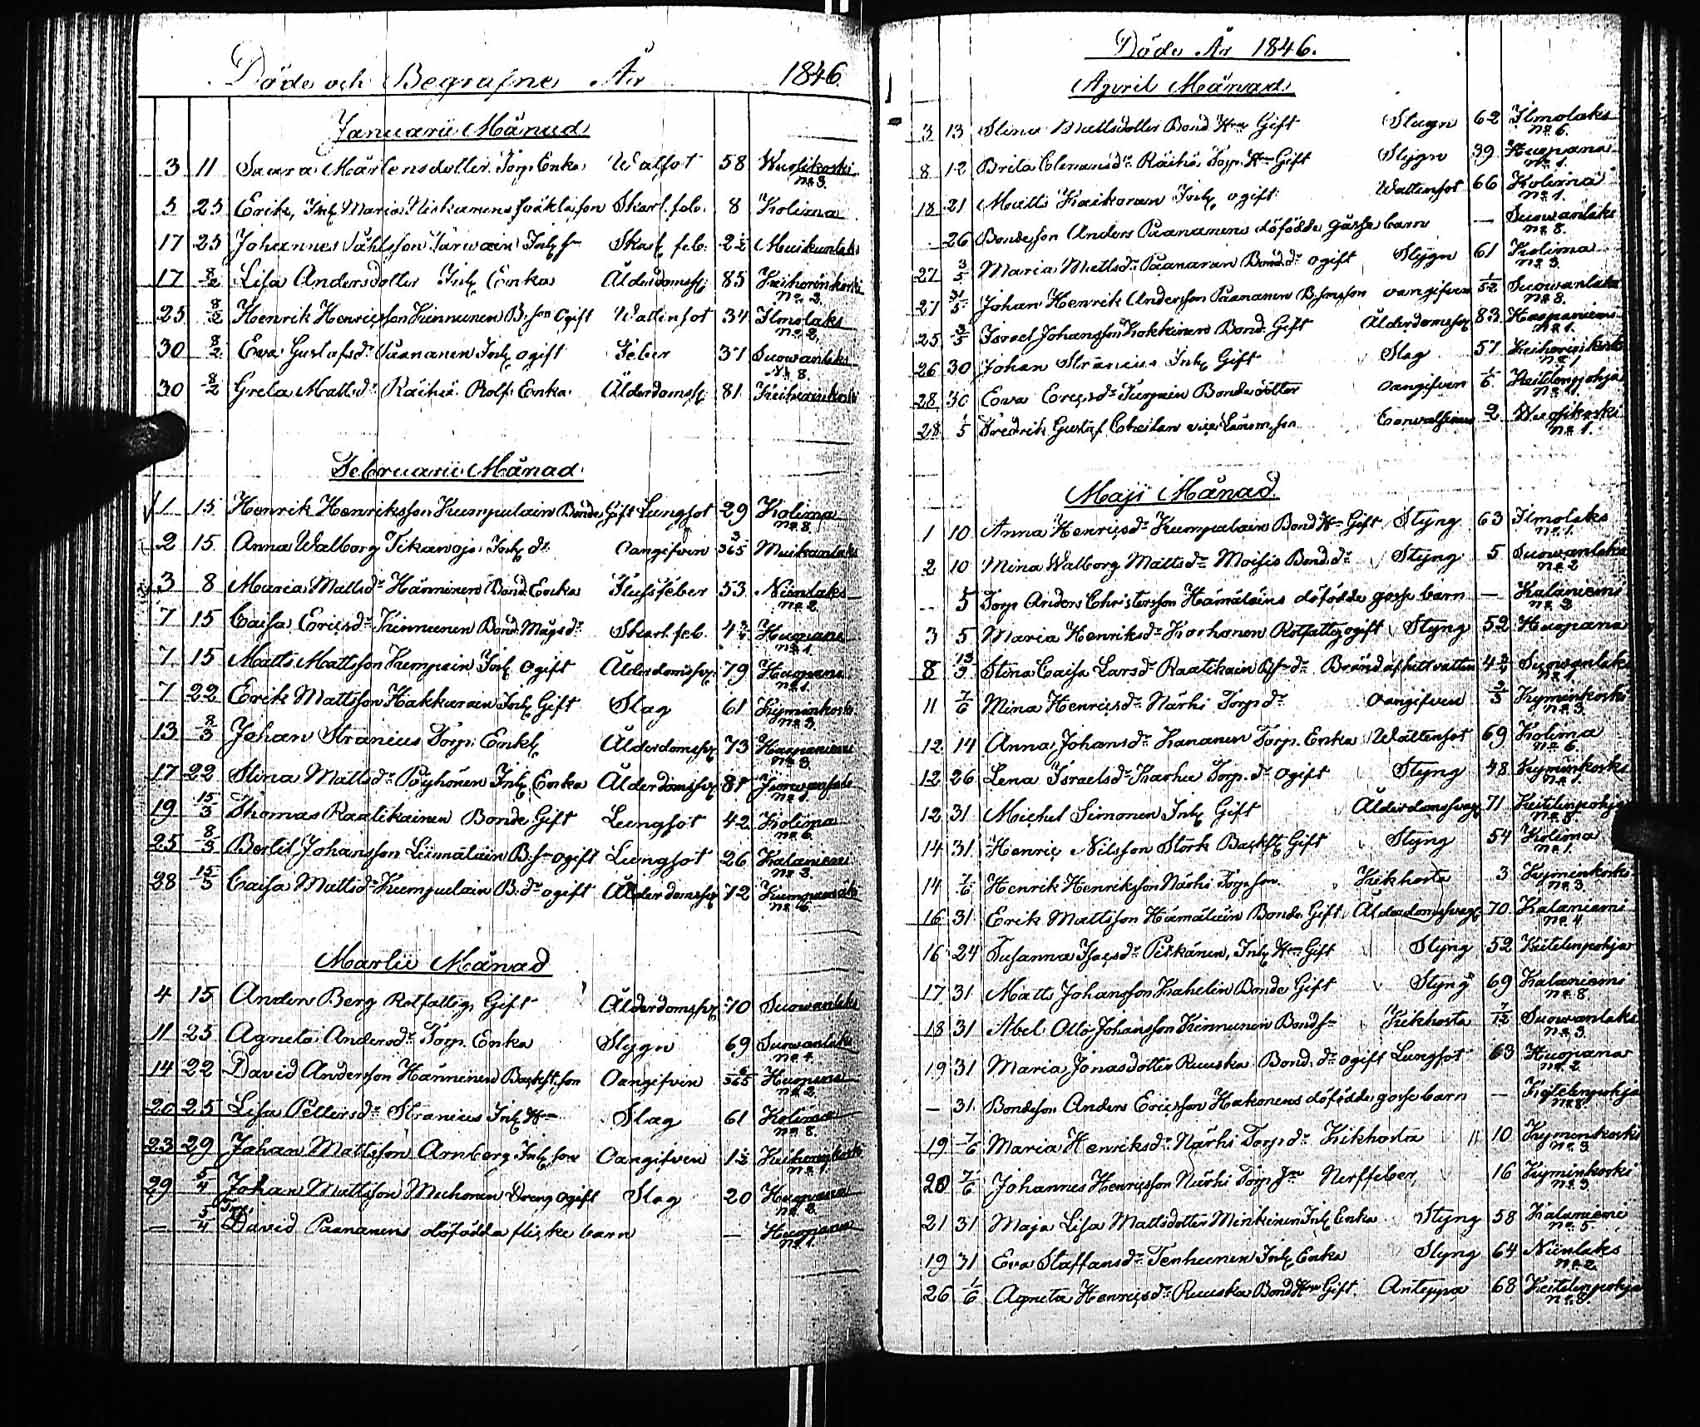 Döde och Begrafne År 1846
Januarii Månad
3 11 Saara Mårtensdotter Torp. Enka Wattot 58 Wuosikoski
No 3.
5 25 Erik, Inh. Maria Niskanens oäkta son Skarl. feb. 8 Kolima
17 25 Johannes Påhlsson Inh. Skarl. feb. 2½ Muikunlaks
17 8/2 Lisa Andersdotter Inh. Enka Ålderdomssv. 85 Keihärinkoski
No 2.
25 8/2 Henrik Henricsson Kinnunen B. son Ogift Wattensot 34 Ilmolaks
No 2
30 8/2 Eva Gustafsdr Paananen Inh. ogift Feber 37 Suowanlaks
No 8.
30 8/2 Greta Mattsdr Räihä Rotf. Enka Ålderdomssv. 81 Keihärinkoski
Februarii Månad
1 15 Henrik Henriksson Kumpulain Bonde Gift Lungsot 29 Kolima
No 8.
2 15 Anna Walborg Tikawojs Inh. dr Oangifven 3/365 Muikunlaks
3 8 Maria Mattsdr Hänninen Bond. Enka Flussfeber 53 Niinilaks
No 2
7 15 Caisa Ericsdr Kinnunen Bond. Mågs dr Skarl. feb. 4 Huopana
No 1.
7 15 Matts Mattsson Kumpain Inh. Ogift Ålderdomssv. 79 Huopana
No 1.
7 22 Erik Mattsson Hakkarain Inh. Gift Slag 61 Kyminkoski
No 3
13 8/3 Johan Stranius Torp. Enkl. Ålderdomssv. 73 Haapaniemi
No 3.
17 22 Stina Mattsdr Pöyhönen Inh. Enka Ålderdomssv. 81
No 1.
19 15/3 Thomas Raatikainen Bonde Gift Lungsot 42 Kolima
No 6.
25 8/3 Bertil Johansson Liimatain B. son ogift Lungsot 26 Kalaniemi
No 3
28 15/3 Caisa Mattsdr Kumpulain B. dr ogift Ålderdomssv. 72
No 6.
Martii Månad
4 15 Anders Berg Rotfattig Gift Ålderdomssv. 70 Suowanlaks
11 25 Agneta Andersdr Torp. Enka Stygn 69 Suowanlaks
No 4.
14 22 David Andersson Hänninen Backst. son Oangifvin /365 Huopana
No 2.
20 25 Lisa Pettersdr Stranius Inh. Hu Slag 61 Kolima
No 8.
23 29 Johan Mattsson Arnberg Inh. son Oangifven 1½ Keihärinkoski
No 1
29 5/4 Johan Mattsson Muhonen Dreng Ogift Slag 20 Huopana
No 3.
— 5/4 Torp. David Paananens dödfödda flickebarn — Huopana
No 1.
Döde År 1846.
April Månad
3 13 Stina Mattsdotter Bond Hu Gift Stygn 62 Ilmolaks
No 6.
8 12 Brita Clemensdr Räihä Torp. Hu Gift Stygn 39 Huopana
No 1.
18 21 Matts Kaikonen Inh. ogift Wattensot 66 Kolima
No 1.
26 Bondesson Anders Paananens dödfödde gosse barn — Suowanlaks
No 8.
27 3/5 Maria Mattsdr Paananen Bond. dr ogift Stygn 61 Kolima
No 3
27 3/5 Johan Henrik Andersson Paananen B. sonson oangifven 1/52 Suowanlaks
No 8.
25 3/5 Israel Johansson Kokkinen Bond. Gift Ålderdomssv. 83 Haapaniemi
No 1.
26 30 Johan Stranius Inh. Gift Slag 57 Keihärinkoski
No 1
28 30 Ewa Ericsdr Turpein Bondedotter oangifven 1/6 Keitelenpohja
No 1.
28 5 Fredrik Gustaf 2 Wuosikoski
No 1.
Maji Månad
1 10 Anna Henricsdr Kumpulain Bond Hu Gift Styng 63 Ilmolaks
No 1.
2 10 Mina Walborg Mattsdr Moisio Bond. dr Styng 5 Suowanlaks
No 2
5 Torp Anders Christersson Hämäläins dödfödde gosse barn — Kalaniemi
No 3
3 5 Maria Henriksdr Korhonen Rotfattig ogift Styng 52 Huopana
8 13/3 Stina Caisa Larsdr Raatikain Bränd af hett vatten 4 Suowanlaks
No 1.
11 7/6 Mina Henricsdr Närhi Torp dr oangifven 2/3 Kyminkoski
No 3
12 14 Anna Johansdr Kananen Torp. Enka Wattensot 69 Kolima
No 6.
12 26 Lena Israelsdr Karhu Torp. dr Ogift Styng 48 Kyminkoski
No 1.
12 31 Michel Simonen Inh. Gift Ålderdomssvag. 71 Keitelenpohja
No 8
14 31 Henric Nilsson Stork Backst. Gift Styng 54 Kolima
No 1.
14 7/6 Henrik Henriksson Närhi Torp son Kikhosta 3 Kyminkoski
No 3.
16 31 Erik Mattsson Hämäläin Bonde Gift Ålderdomssvag. 70 Kalaniemi
No 4
16 24 Susanna Isacsdr Piikänen, Inh. Hu Gift Styng 52 Keitelenpohja
17 31 Matts Johansson Kahelin Bonde Gift Styng 69 Kalaniemi
No 8.
18 31 Abel Otto Johansson Kinnunen Bond. s Kikhosta 7/12 Suowanlaks
No 3.
19 31 Maria Jonasdotter Ruuska Bond. dr ogift Lungsot 63 Huopana
No 2.
— 31. Bondeson Anders Ericsson Hakonens dödfödde gosse barn — Keitelenpohja
No 8.
19 7/6 Maria Henriksdr Närhi Torp dr Kikhosta 10 Kyminkoski
No 3
20 7/6 Johannes Henricsson Närhi Torp. son Nerffeber 16 Kyminkoski
No 3.
21 31 Maja Lisa Mattsdotter Minkinen Inh. Enka Styng 58 Kalaniemi
No 5
19 31 Eva Staffansdr Tenhunen Inh. Enka Styng 64 Niinilaks
No 2
26 1/6 Agneta Henricsdr Ruuska Bond Hu Gift Anteppa 68 Keitelenpohja
No 8.